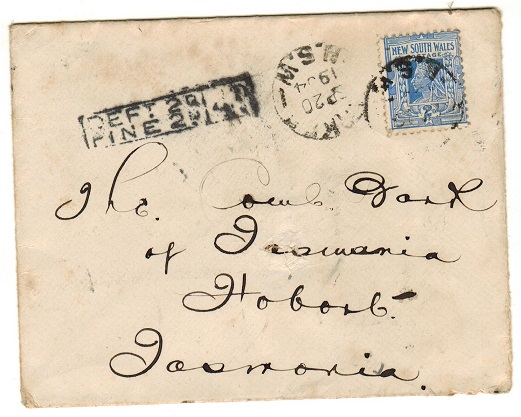 NEW SOUTH WALES
POSTAGE
2d
N.S.W
SP 20
1904
DEFT 2D
FINE 2D
The Coml. Bank
of Tasmania
Hobart
Tasmania.